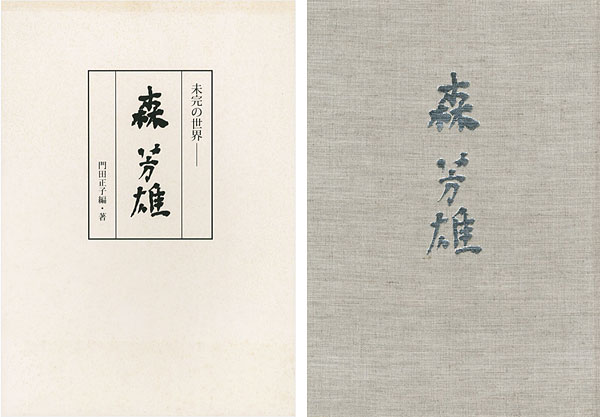 未完の世界――
森 芳雄
門田正子編・著
森 芳雄